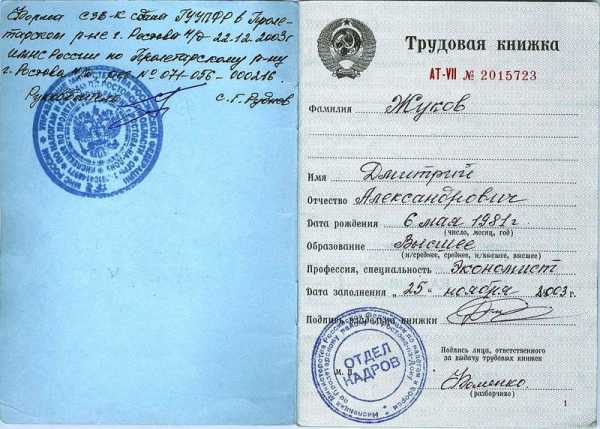 Форма СЗВ-К сдана ГУУПФР в Проле-
тарском р-не г. Ростова н/Д 22.12.2003г
ИМНС России по Пролетарскому р-ну
г. Ростова н/Д № 071-056-000216
Руководитель С. Г. Руднов
Трудовая книжка
АТ-VII № 2015723
Фамилия Жуков
Имя Дмитрий
Отчество Александрович
Дата рождения 6 мая 1981г.
(число, месяц, год)
Образование Высшее
(н/среднее, среднее, н/высшее, высшее)
Профессия, специальность Экономист
Дата заполнения „25" ноября 2003г.
Подпись владельца книжки
ОТДЕЛ
КАДРОВ
М. П.
Подпись лица, ответственного
за выдачу трудовых книжек
(разборчиво)
1